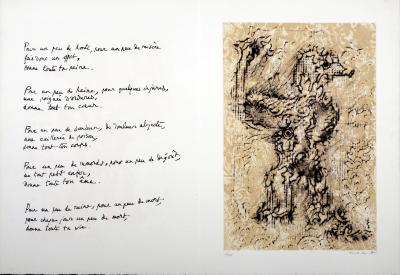 Pour un peu de honte, pour un peu de misère
fais donc un effort,
donne toute ta peine.
Pour un peu de haine, pour quelques injures,
une poignée d'ordures,
donne tout ton cœur.
Pour un peu de douleur, de douleurs abjectes,
une cuillerée de poison,
donne tout ton corps.
Pour un peu de remords, pour un peu de
un tout petit enfer,
donne toute ton âme.
Pour un peu de ruine, pour un peu de mort,
pour chaque jour un peu de mort
donne toute ta vie.